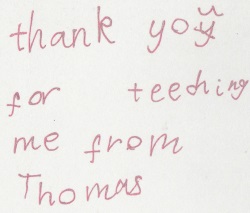 thank you
for teeching
me from
Thomas